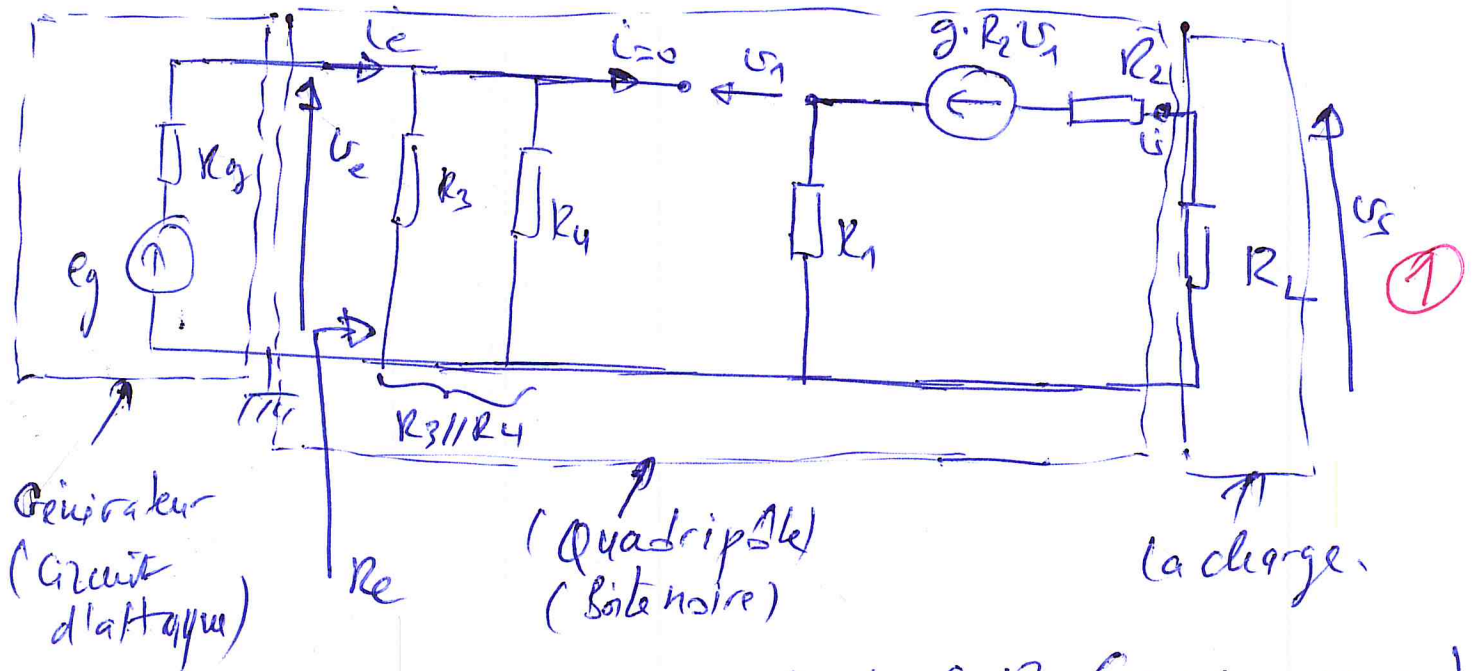 ie
i=0
v1
g·R2 v1
R2
Rg
ve
R3
R4
R1
i
RL
vs
1
eg
R3//R4
Générateur
(Circuit
d'attaque)
Re
(Quadripôle)
(Boîte noire)
la charge.